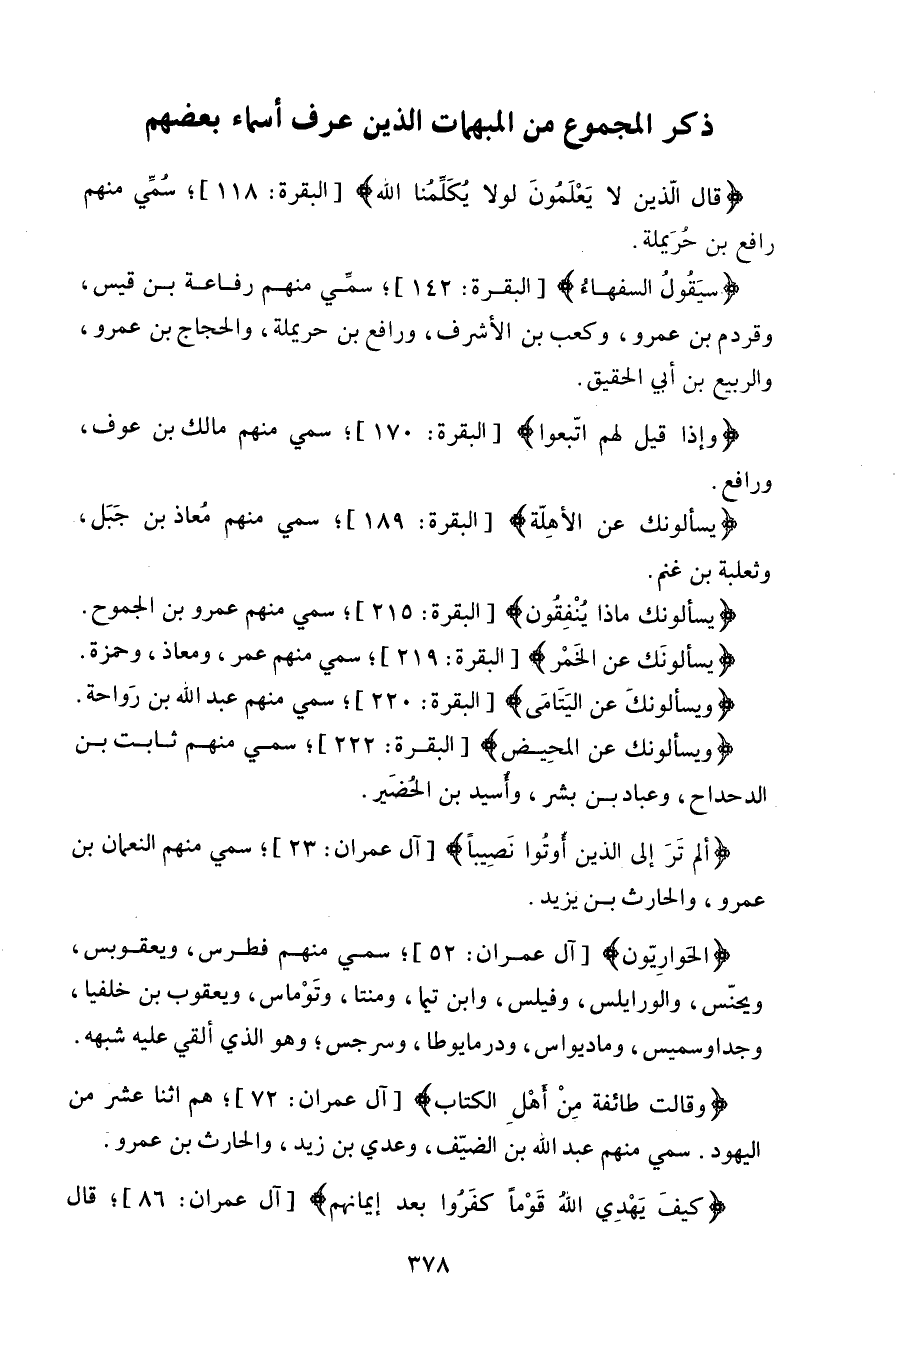 ذكر المجموع من المبهمات الذين عرف أسماء بعضهم
﴿قال الّذين لا يَعْلَمُونَ لولا يُكَلِّمُنا الله﴾ [البقرة: ١١٨]؛ سُمِّي منهم
رافع بن حُرَيملة.
﴿سيَقُولُ السفهاءُ﴾ [البقرة: ١٤٢]؛ سمِّي منهم رفاعة بن قيس،
وقردم بن عمرو، وكعب بن الأشرف، ورافع بن حريملة، والحجاج بن عمرو،
والربيع بن أبي الحقيق.
﴿وإذا قيل لهم اتّبعوا﴾ [البقرة: ١٧٠]؛ سمي منهم مالك بن عوف،
ورافع.
﴿يسألونك عن الأهِلّة﴾ [البقرة: ١٨٩]؛ سمي منهم مُعاذ بن جَبَل،
وثعلبة بن غنم.
﴿يسألونك ماذا يُنْفِقُون﴾ [البقرة: ٢١٥]؛ سمي منهم عمرو بن الجموح.
﴿يسألونَك عن الخَمْر﴾ [البقرة: ٢١٩]؛ سمي منهم عمر، ومعاذ، وحمزة.
﴿ويسألونكَ عن اليَتَامَى﴾ [البقرة: ٢٢٠]؛ سمي منهم عبد الله بن رَواحة.
﴿ويسألونك عن المحِيض﴾ [البقرة: ٢٢٢]؛ سمي منهم ثابت بن
الدحداح، وعباد بن بشر، وأُسيد بن الحُضَير.
﴿ألم تَرَ إلى الذين أُوتُوا نَصِيباً﴾ [آل عمران: ٢٣]؛ سمي منهم النعمان بن
عمرو، والحارث بن يزيد.
﴿الحَوارِيّون﴾ [آل عمران: ٥٢]؛ سمي منهم فطرس، ويعقوبس،
ويحنّس، والورايلس، وفيلس، وابن تيما، ومنتا، وتَوْماس، ويعقوب بن خلفيا،
وجداوسميس، وماديواس، ودرمايوطا، وسرجس؛ وهو الذي ألقي عليه شبهه.
﴿وقالت طائفة مِنْ أَهْلِ الكتاب﴾ [آل عمران: ٧٢]؛ هم اثنا عشر من
اليهود. سمي منهم عبد الله بن الضيّف، وعدي بن زيد، والحارث بن عمرو.
﴿كيفَ يَهْدِي اللهُ قَوْماً كفَرُوا بعد إيمانهم﴾ [آل عمران: ٨٦]؛ قال
٣٧٨